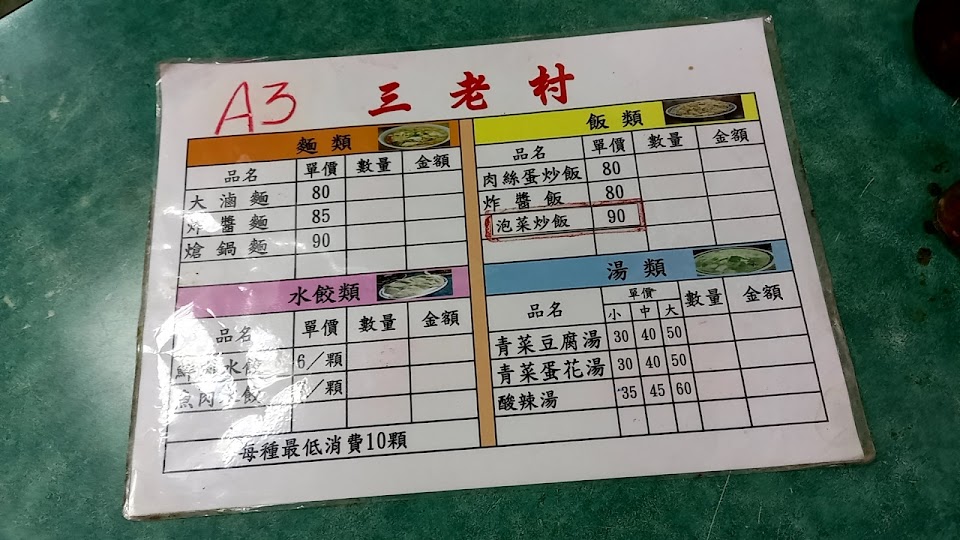 A3
三老村
麵類
品名 單價 數量 金額
大滷麵 80
炸醬麵 85
熗鍋麵 90
飯類
品名 單價 數量 金額
肉絲蛋炒飯 80
炸醬飯 80
泡菜炒飯 90
水餃類
品名 單價 數量 金額
水餃 6/顆
魚肉 餃 /顆
每種最低消費10顆
湯類
品名 單價 數量 金額
小 中 大
青菜豆腐湯 30 40 50
青菜蛋花湯 30 40 50
酸辣湯 35 45 60